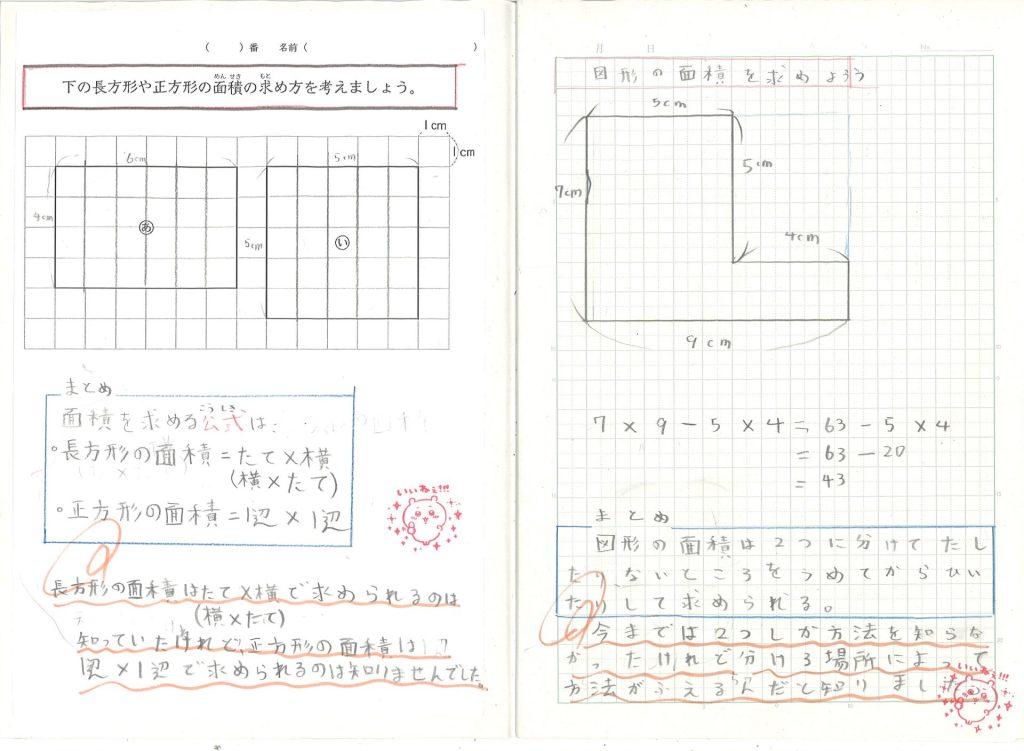 (　　)番　名前(　　　　　　)
下の長方形や正方形の面積の求め方を考えましょう。
めん せき
もと
1cm
1cm
6cm
5cm
4cm
あ
5cm
い
まとめ
面積を求める公式は、
こう しき
・長方形の面積=たて×横
(横×たて)
・正方形の面積=1辺×1辺
いいねぇ!!!
長方形の面積はたて×横で求められるのは
(横×たて)
知っていたけれど、正方形の面積は1辺
1辺×1辺で求められるのは知りませんでした。
月　日
No.
図形の面積を求めよう
5cm
7cm
5cm
4cm
9cm
7×9-5×4=63-5×4
=63-20
=43
まとめ
図形の面積は2つに分けてたし
たり、ないところをうめてからひい
たりして求められる。
今までは2つしか方法を知らな
かったけれど分ける場所によって
方法がふえるんだと知りました
いいねぇ!!!